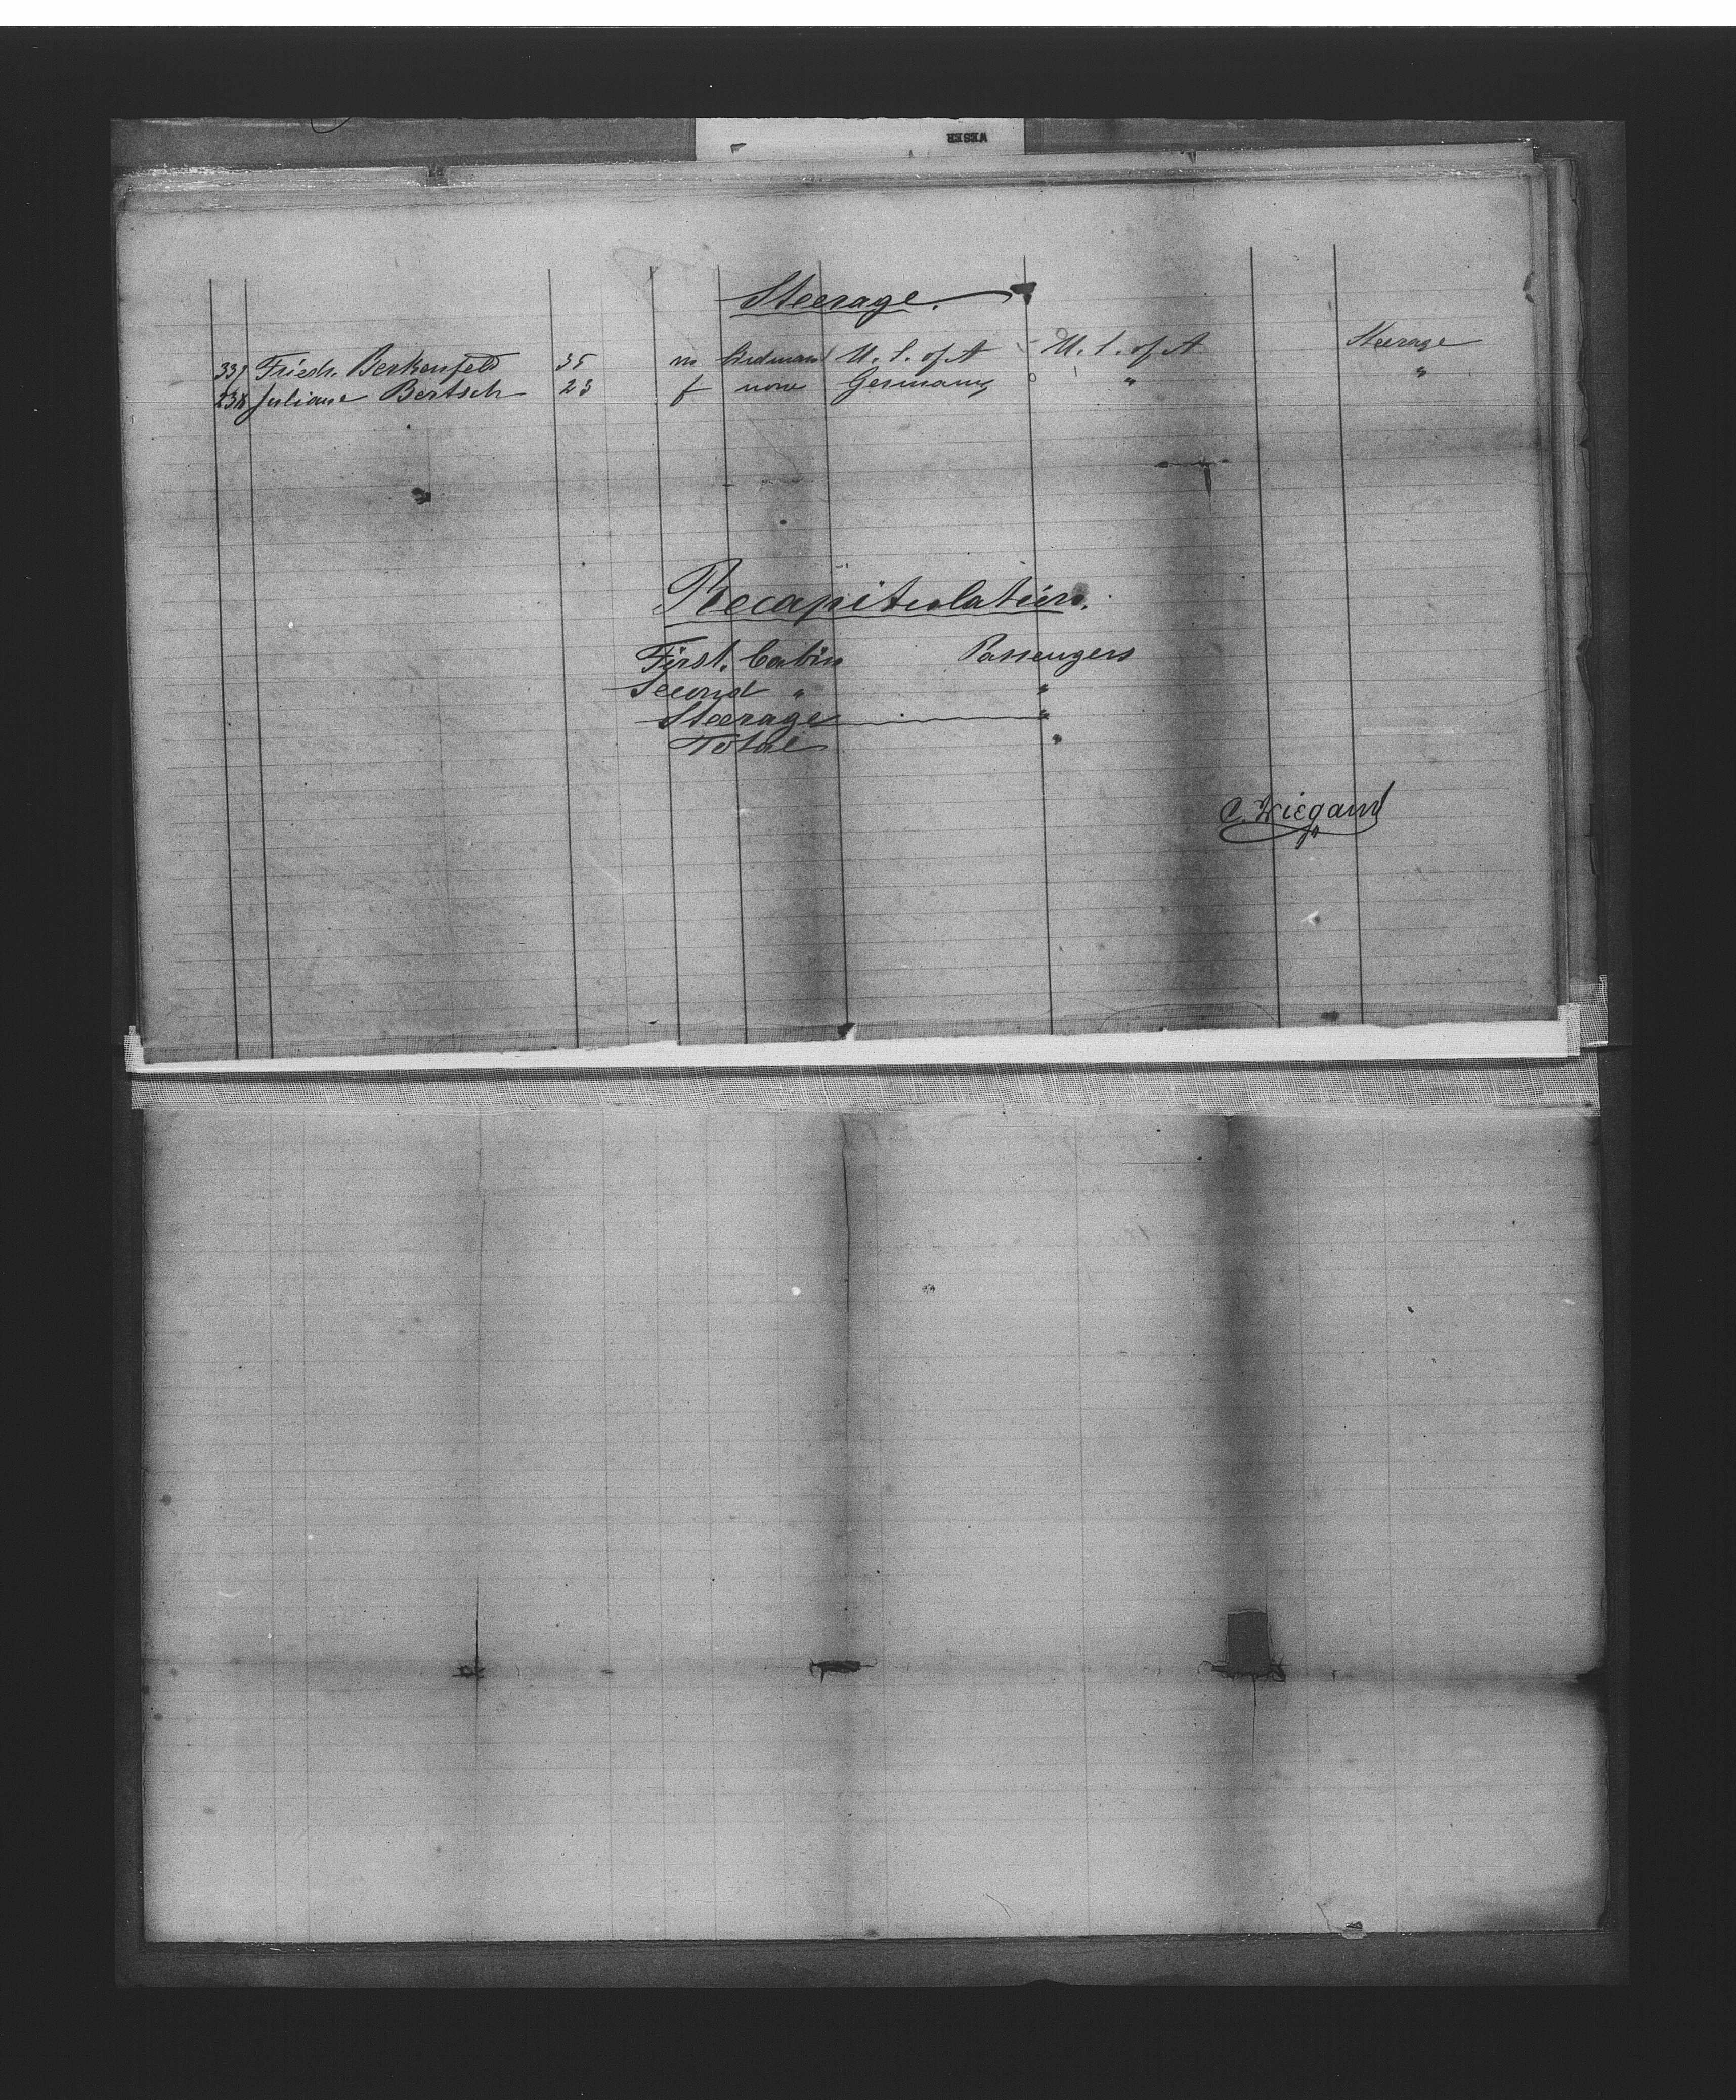 WESER
Steerage.
337 Friedr. Berkenfeld 35 m U. S. of A U. S. of A Steerage
238 Juliane Bertsch 23 f none Germany " "
Recapitulation.
First. Cabin Passengers
Second " "
Steerage "
Total "
C. Wiegand